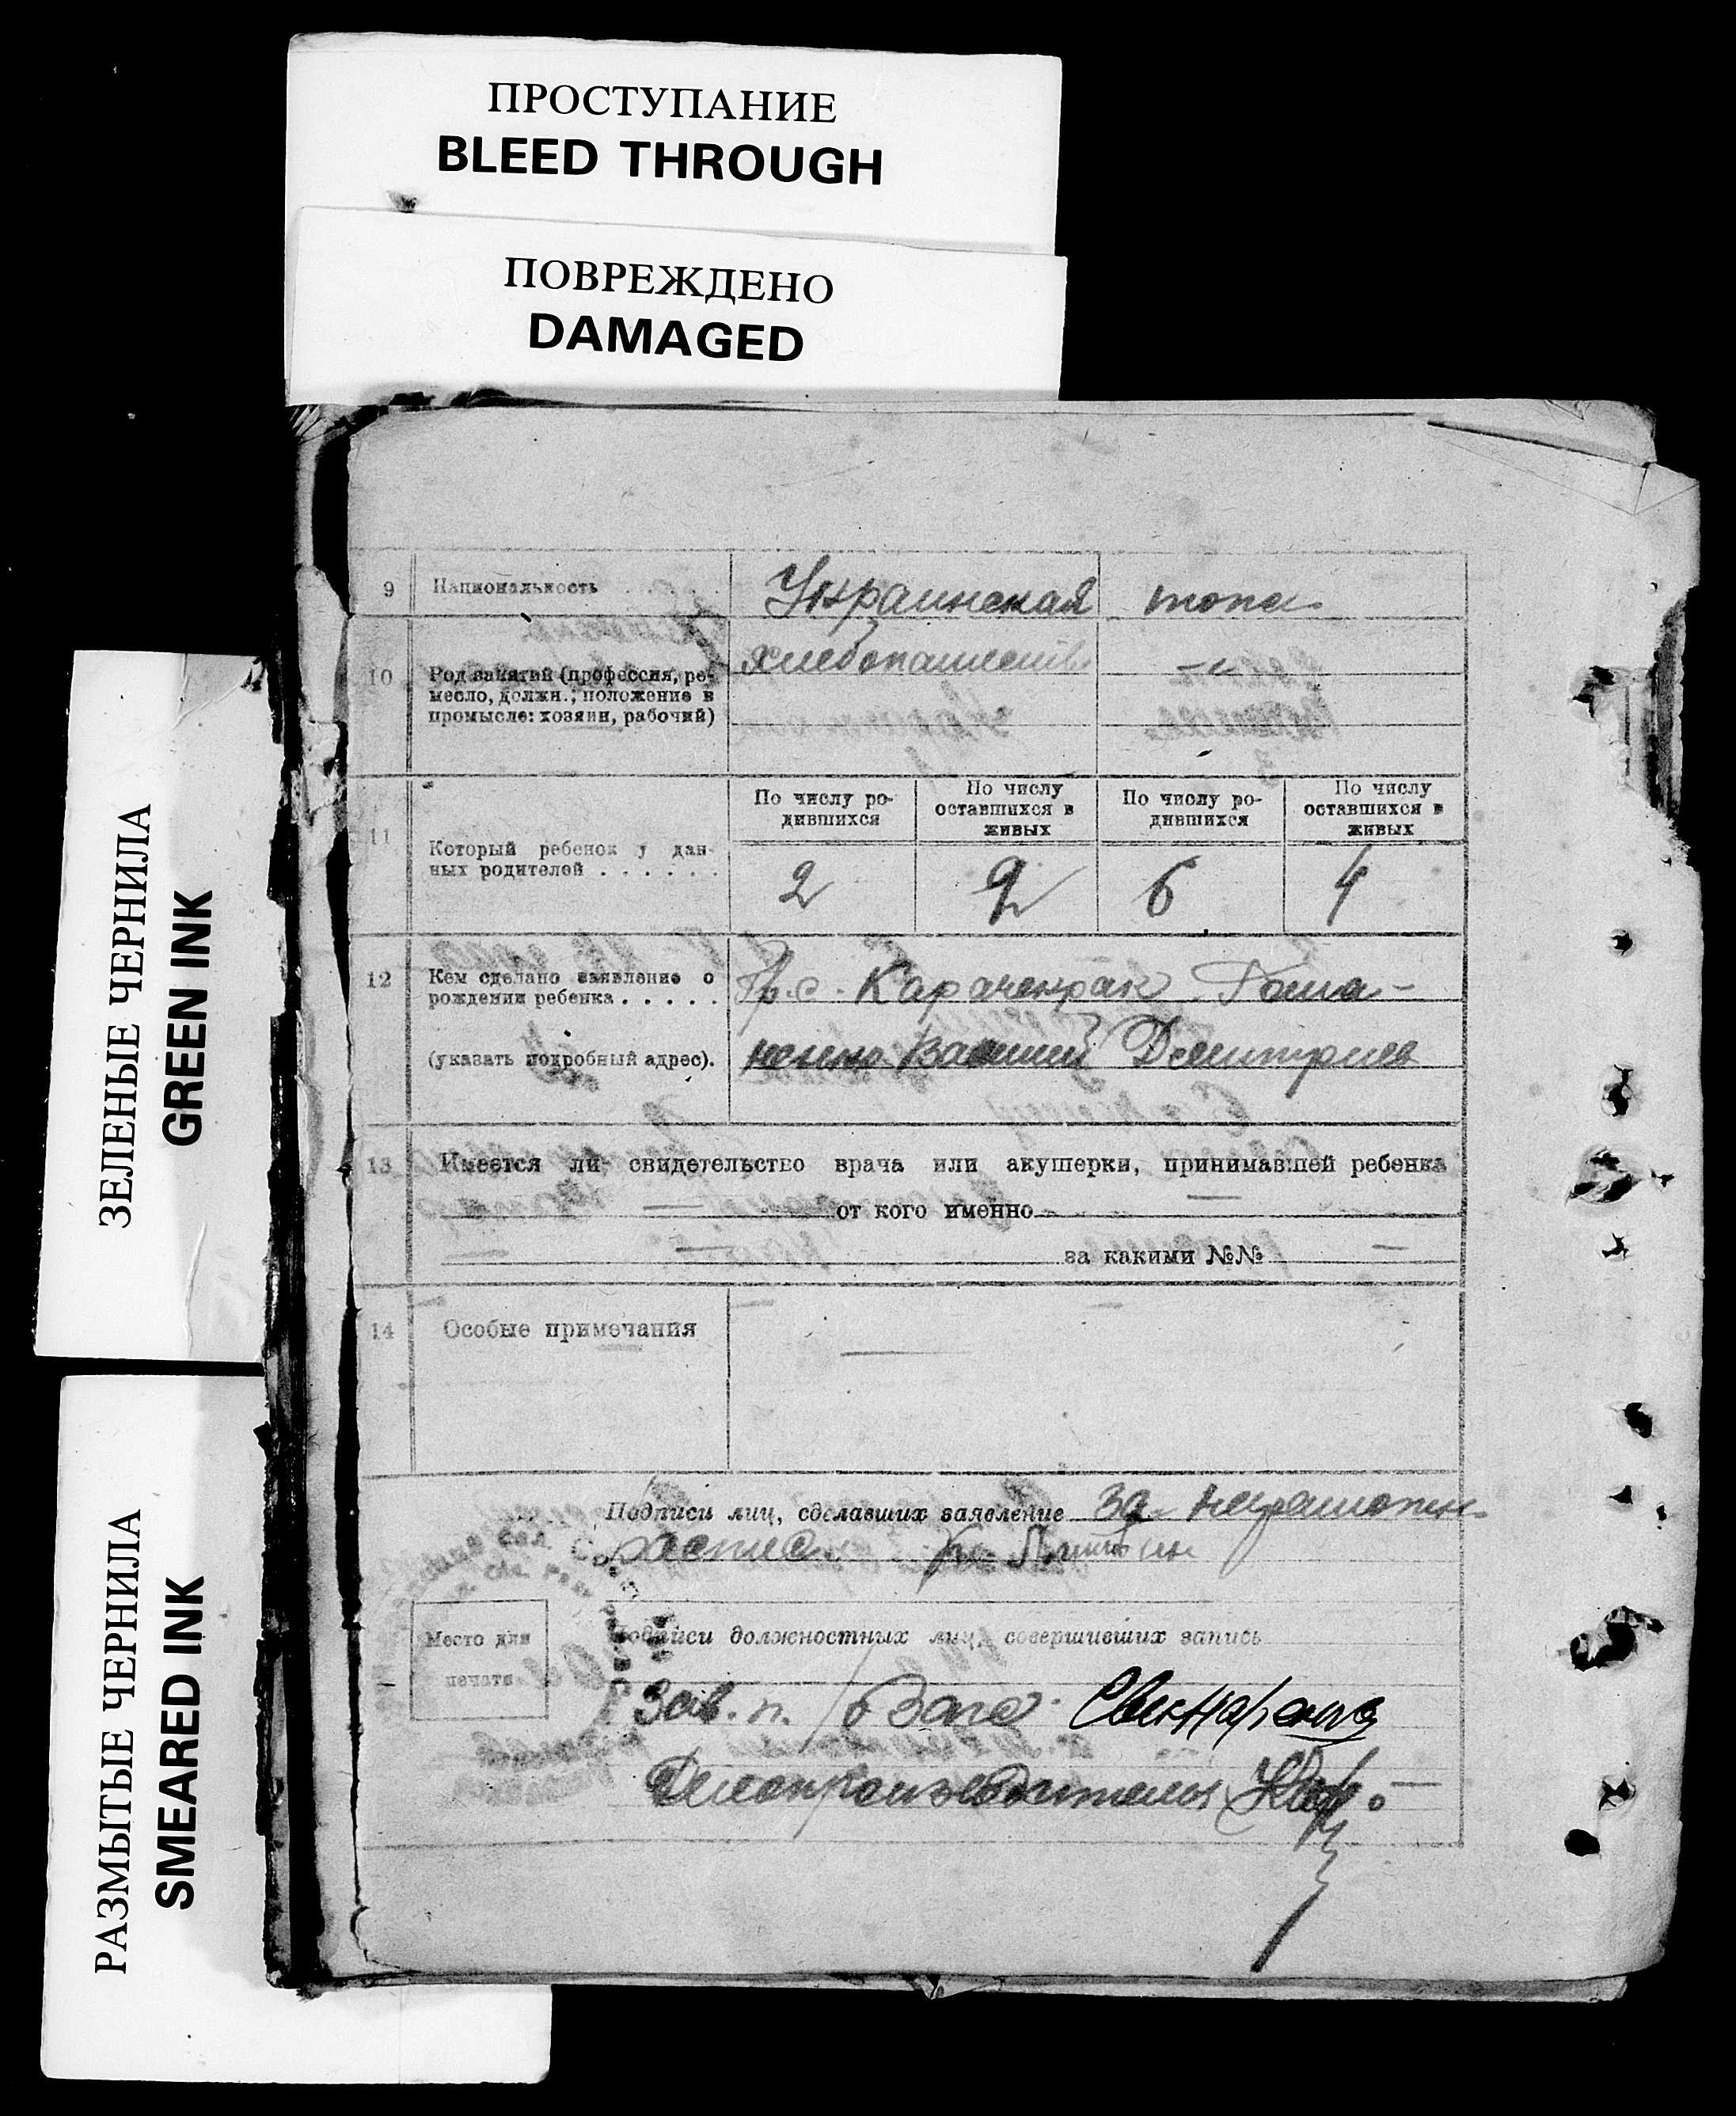 ПРОСТУПАНИЕ
BLEED THROUGH
ПОВРЕЖДЕНО
DAMAGED
ЗЕЛЕНЫЕ ЧЕРНИЛА
GREEN INK
РАЗМЫТЫЕ ЧЕРНИЛА
SMEARED INK
9 Национальность Украинская тоже
10 Род занятий (профессия, ре-
месло, должн., положение в
промысле: хозяин, рабочий)
хлебопашество -"-
11 Который ребенок у дан-
ных родителей . . . . . .
По числу ро-
дившихся
По числу
оставшихся в
живых
По числу ро-
дившихся
По числу
оставшихся в
живых
2 2 6 4
12 Кем сделано заявление о
рождении ребенка . . . . .
(указать подробный адрес).
гр. с. Карачекрак
Василий Дмитриев
13 Имеется ли свидетельство врача или акушерки, принимавшей ребенка
— от кого именно —
— за какими №№ —
14 Особые примечания —
Подписи лиц, сделавших заявление за неграмотн.
распис.
Место для
печати
Подписи должностных лиц, совершивших запись
Зав. п/о Загс
Делопроизводитель